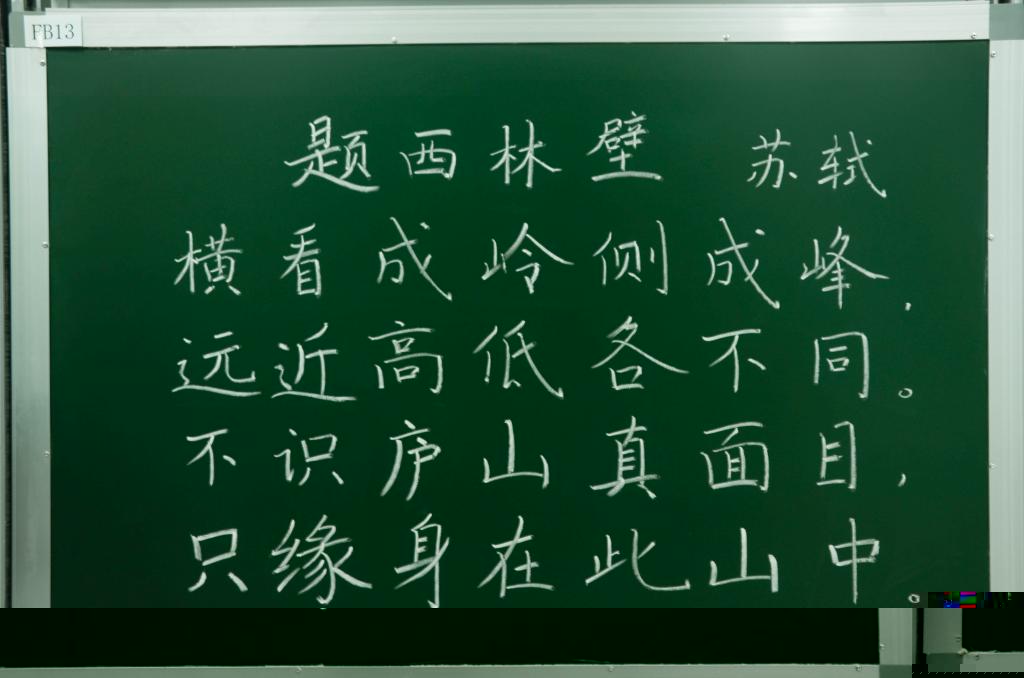 FB13
题西林壁 苏轼
横看成岭侧成峰,
远近高低各不同。
不识庐山真面目,
只缘身在此山中。